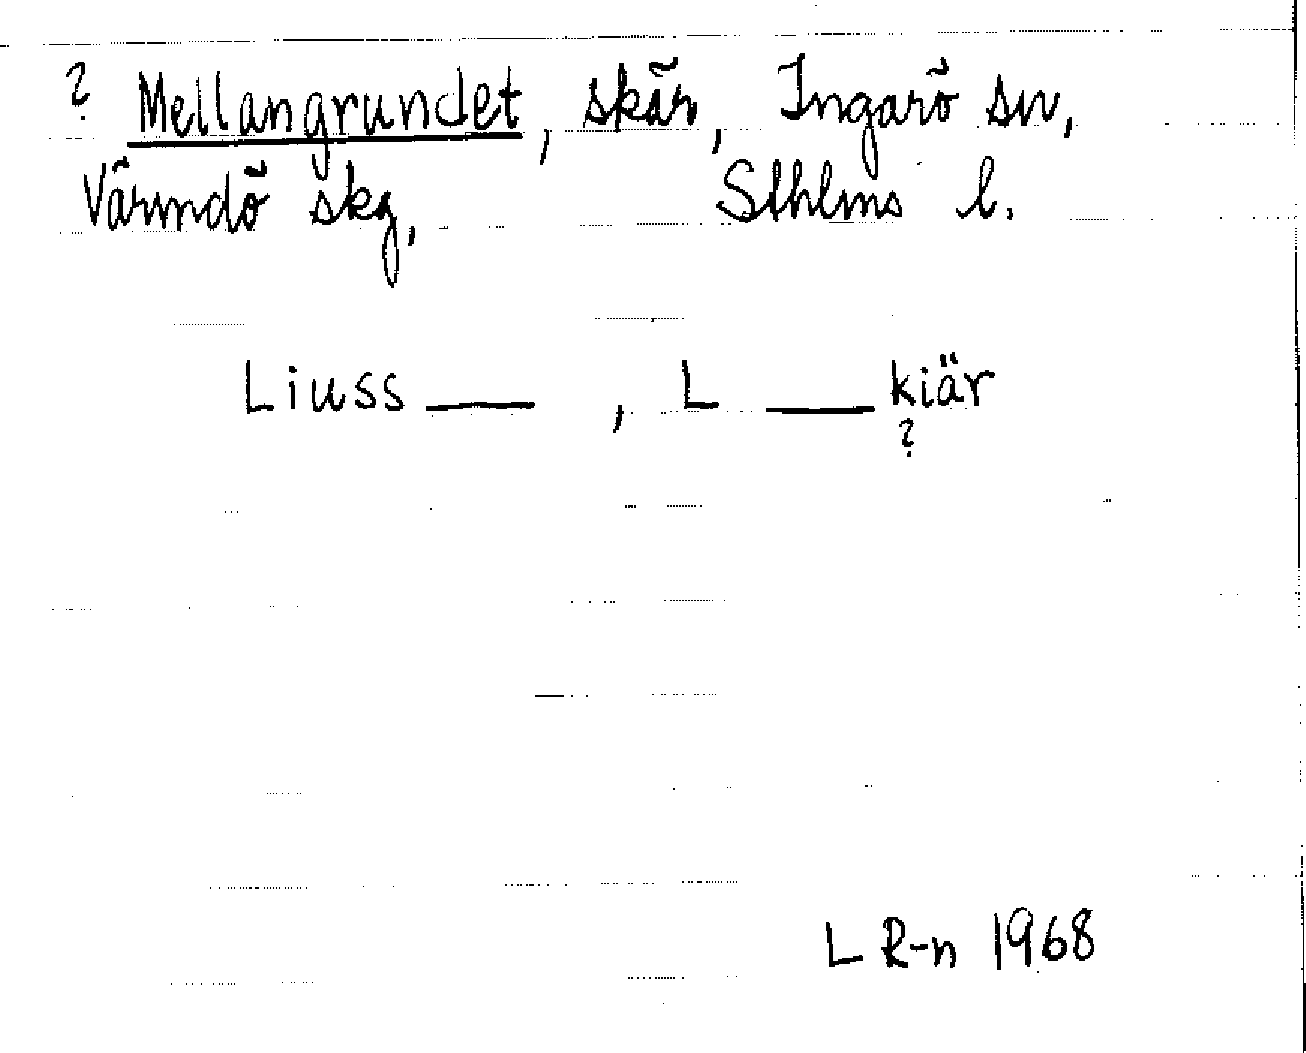 ? Mellangrundet, skär, Ingarö sn,
Värmdö skg, Sthlms l.
Liuss ——— , L ——— kiär
?
L R-n 1968